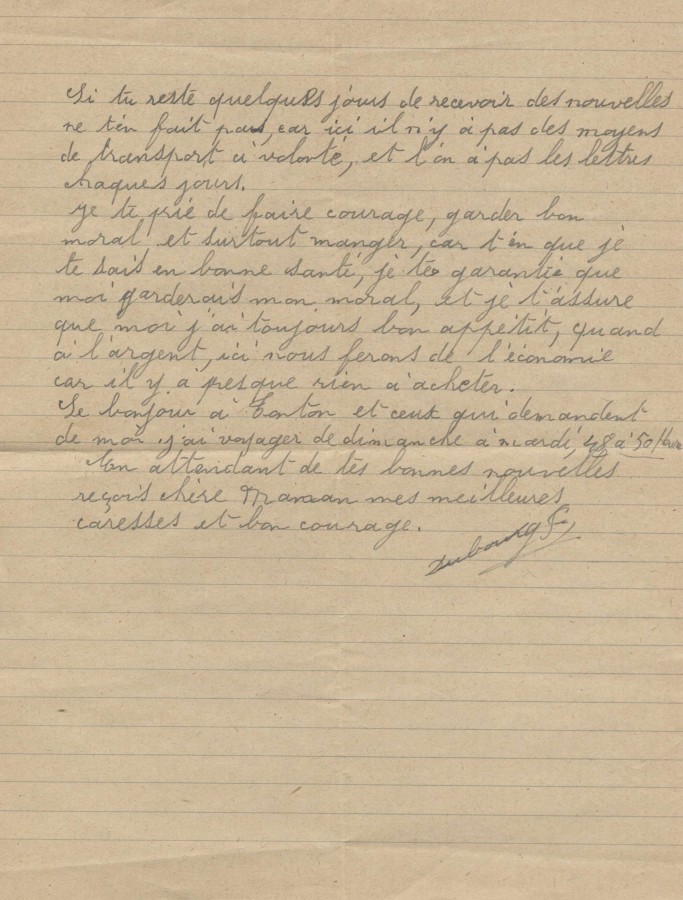 Si tu reste quelques jours de recevoir des nouvelles
ne t'en fait pas, car ici il n'y à pas des moyens
de transport à volonté, et l'on à pas les lettres
chaques jours.
Je te prié de faire courage, garder bon
moral et surtout manger, car t'en que jè
te sais en bonne santé, jè te garantie que
moi garderais mon moral, et jè t'assure
que moi j'ai toujours bon appétit, quand
à l'argent, ici nous ferons de l'économie
car il y à presque rien à acheter.
Le bonjour à Tonton et ceux qui demandent
de moi j'ai voyager de dimanche à mardi, 48 à 50 heures
En attendant de tès bonnes nouvelles
reçois chère Maman mes meilleures
caresses et bon courage.
Dubourg F,